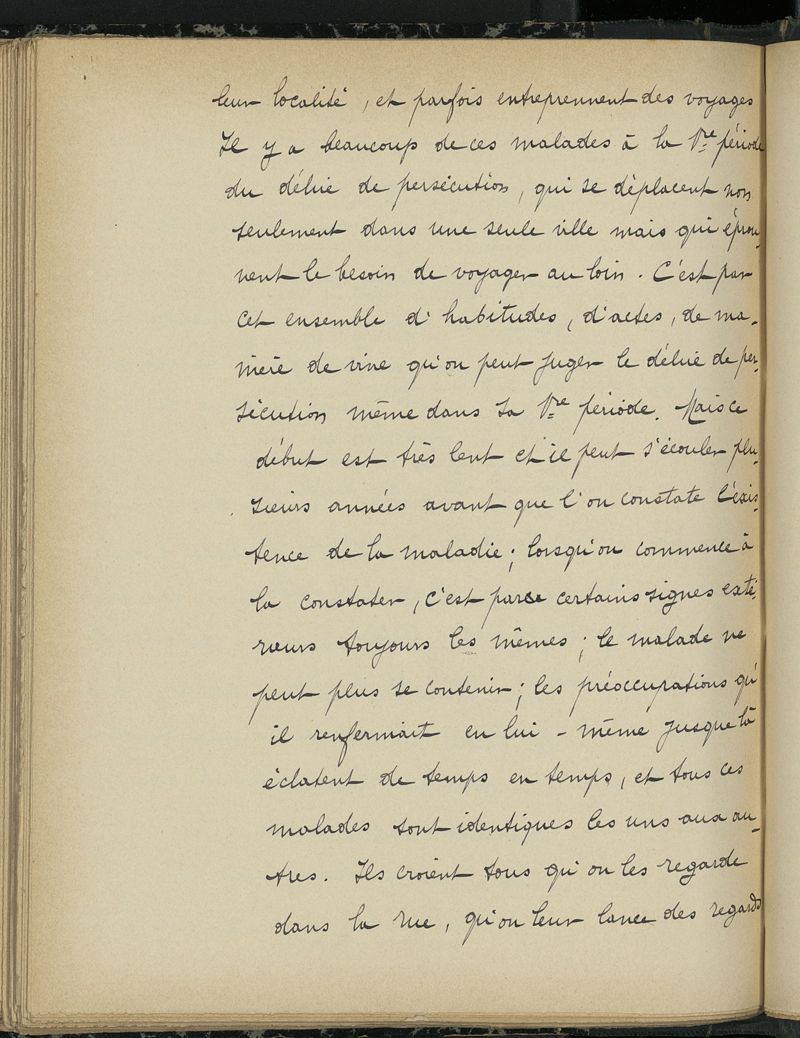 leur localité, et parfois entreprennent des voyages
Il y a beaucoup de ces malades à la 1re période
du délire de persécution, qui se déplacent non
seulement dans une seule ville mais qui éprou-
vent le besoin de voyager au loin. C'est par
cet ensemble d'habitudes, d'actes, de ma-
nière de vivre qu'on peut juger le délire de per-
sécution même dans sa 1re période. Mais ce
début est très lent et il peut s'écouler plu-
sieurs années avant que l'on constate l'exis-
tence de la maladie; lorsqu'on commence à
la constater, c'est par certains signes exté-
rieurs toujours les mêmes; le malade ne
peut plus se contenir; les préoccupations qu'
il renfermait en lui-même jusque là
éclatent de temps en temps, et tous ces
malades sont identiques les uns aux au-
tres. Ils croient tous qu'on les regarde
dans la rue, qu'on leur lance des regards